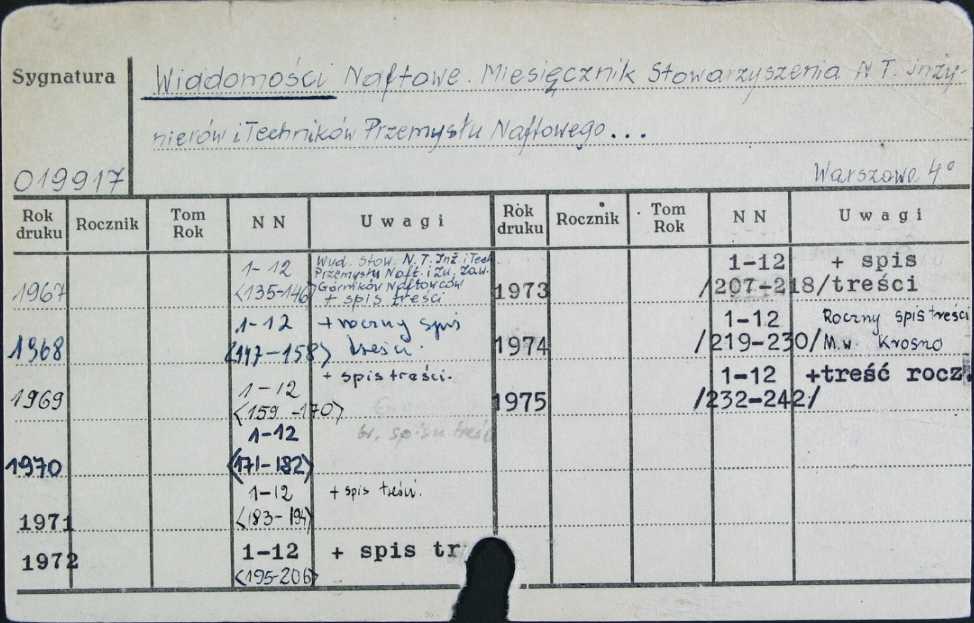 Sygnatura
Wiadomości Naftowe. Miesięcznik Stowarzyszenia N T. Inży-
nierów i Techników Przemysłu Naftowego...
019917
Warszawa 4°
Rok druku Rocznik Tom Rok N N Uwagi Rok druku Rocznik Tom Rok N N Uwagi
1967 1-12 <135-146> Wyd. Stow. N.T. Inż i Tech
Przemysłu Naft. i Zw. Zaw.
Górników Naftowców
+ spis treści
1968 1-12 <147-158> + roczny spis
treści.
1969 1-12 <159-170> + spis treści.
br. spisu treści
1970 1-12 <171-182>
1971 1-12 <183-194> + spis treści.
1972 1-12 <195-206> + spis tr
1973 1-12 /207-218/ + spis
treści
1974 1-12 /219-230/ Roczny spis treści
M.w. Krosno
1975 1-12 /232-242/ +treść rocz.